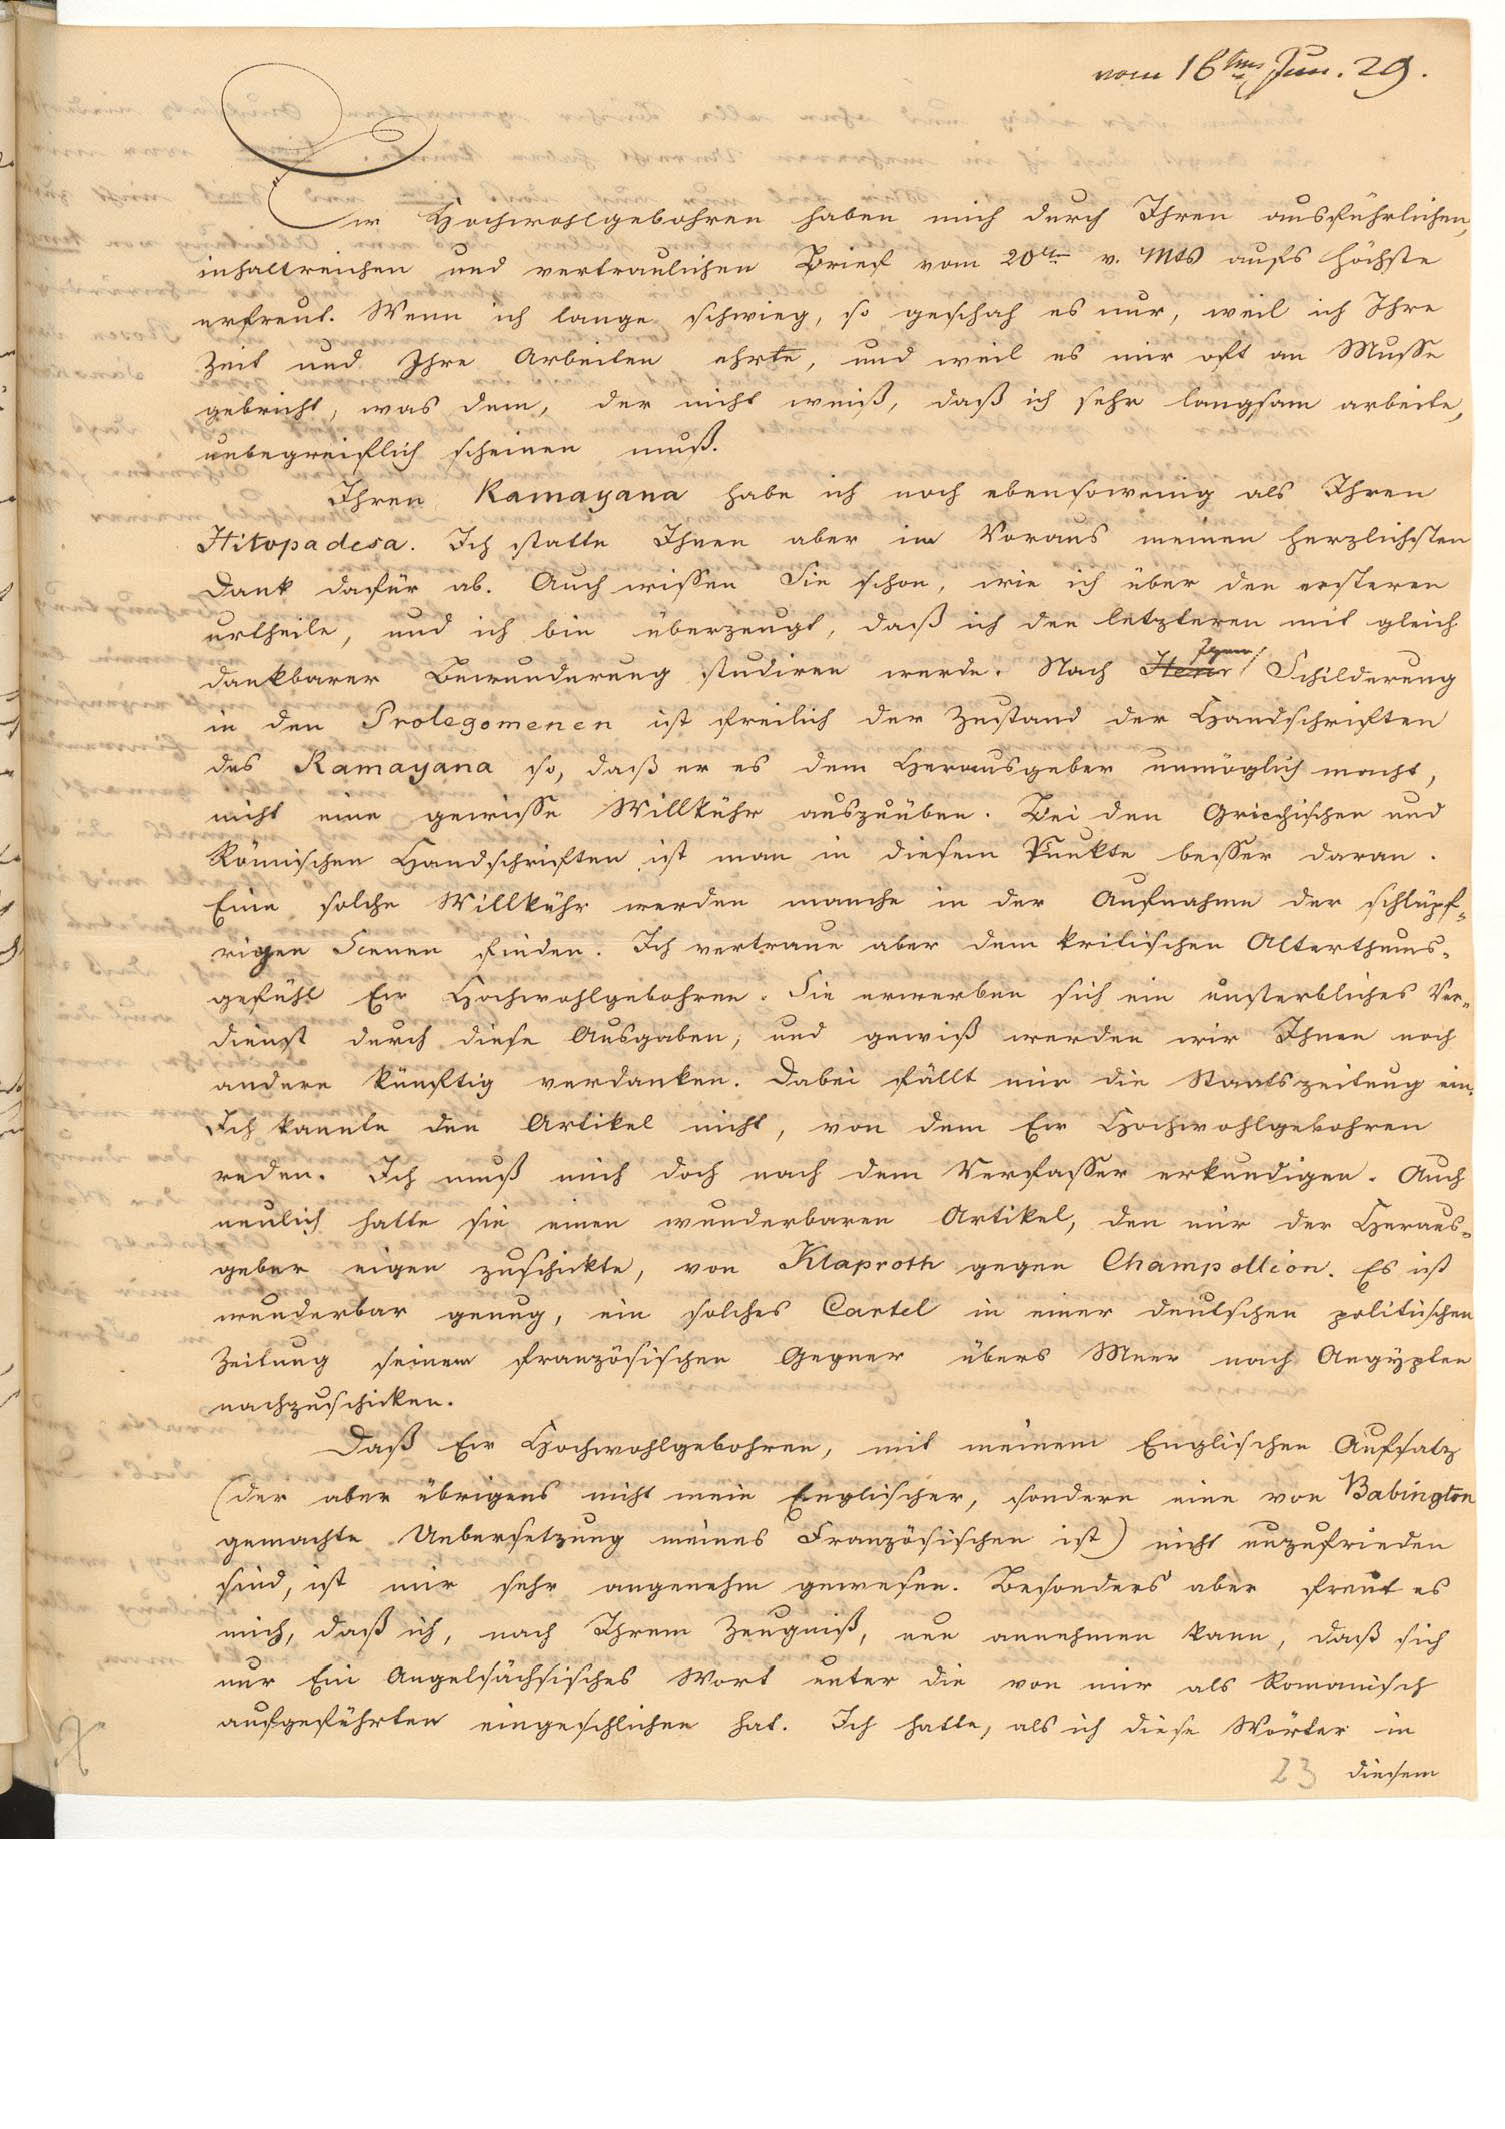 vom 16ten Jun. 29.
Ew Hochwohlgebohren haben mich durch Ihren ausführlichen,
inhaltreichen und vertraulichen Brief vom 20ten v. Mts aufs höchste
erfreut. Wenn ich lange schwieg, so geschah es nur, weil ich Ihre
Zeit und Ihre Arbeiten ehrte, und weil es mir oft an Musse
gebricht, was dem, der nicht weiß, daß ich sehr langsam arbeite,
unbegreiflich scheinen muß.
Ihren Ramayana habe ich noch ebensowenig als Ihren
Hitopadesa. Ich statte Ihnen aber im Voraus meinen herzlichsten
Dank dafür ab. Auch wissen Sie schon, wie ich über den ersteren
urtheile, und ich bin überzeugt, daß ich den letzteren mit gleich
dankbarer Bewunderung studiren werde. Nach Ihrer Schilderung
in den Prolegomenen ist freilich der Zustand der Handschriften
des Ramayana so, daß er es dem Herausgeber unmöglich macht,
nicht eine gewisse Willkühr auszuüben. Bei den Griechischen und
Römischen Handschriften ist man in diesem Punkte besser daran.
Eine solche Willkühr werden manche in der Aufnahme der schlüpf-
rigen Scenen finden. Ich vertraue aber dem kritischen Alterthums-
gefühl Ew Hochwohlgebohren. Sie erwerben sich ein unsterbliches Ver-
dienst durch diese Ausgaben, und gewiß werden wir Ihnen noch
andere künftig verdanken. Dabei fällt mir die Staatszeitung ein.
Ich kannte den Artikel nicht, von dem Ew Hochwohlgebohren
reden. Ich muß mich doch nach dem Verfasser erkundigen. Auch
neulich hatte sie einen wunderbaren Artikel, den mir der Heraus-
geber eigen zuschickte, von Klaproth gegen Champollion. Es ist
wunderbar genug, ein solches Cartel in einer deutschen politischen
Zeitung seinem französischen Gegner übers Meer nach Aegypten
nachzuschicken.
Daß Ew Hochwohlgebohren, mit meinem Englischen Aufsatz
(der aber übrigens nicht mein Englischer, sondern eine von Babington
gemachte Uebersetzung meines Französischen ist) nicht unzufrieden
sind, ist mir sehr angenehm gewesen. Besonders aber freut es
mich, daß ich, nach Ihrem Zeugniß, nun annehmen kann, daß sich
nur Ein Angelsächsisches Wort unter die von mir als Romanisch
aufgeführten eingeschlichen hat. Ich hatte, als ich diese Wörter in
23 diesem